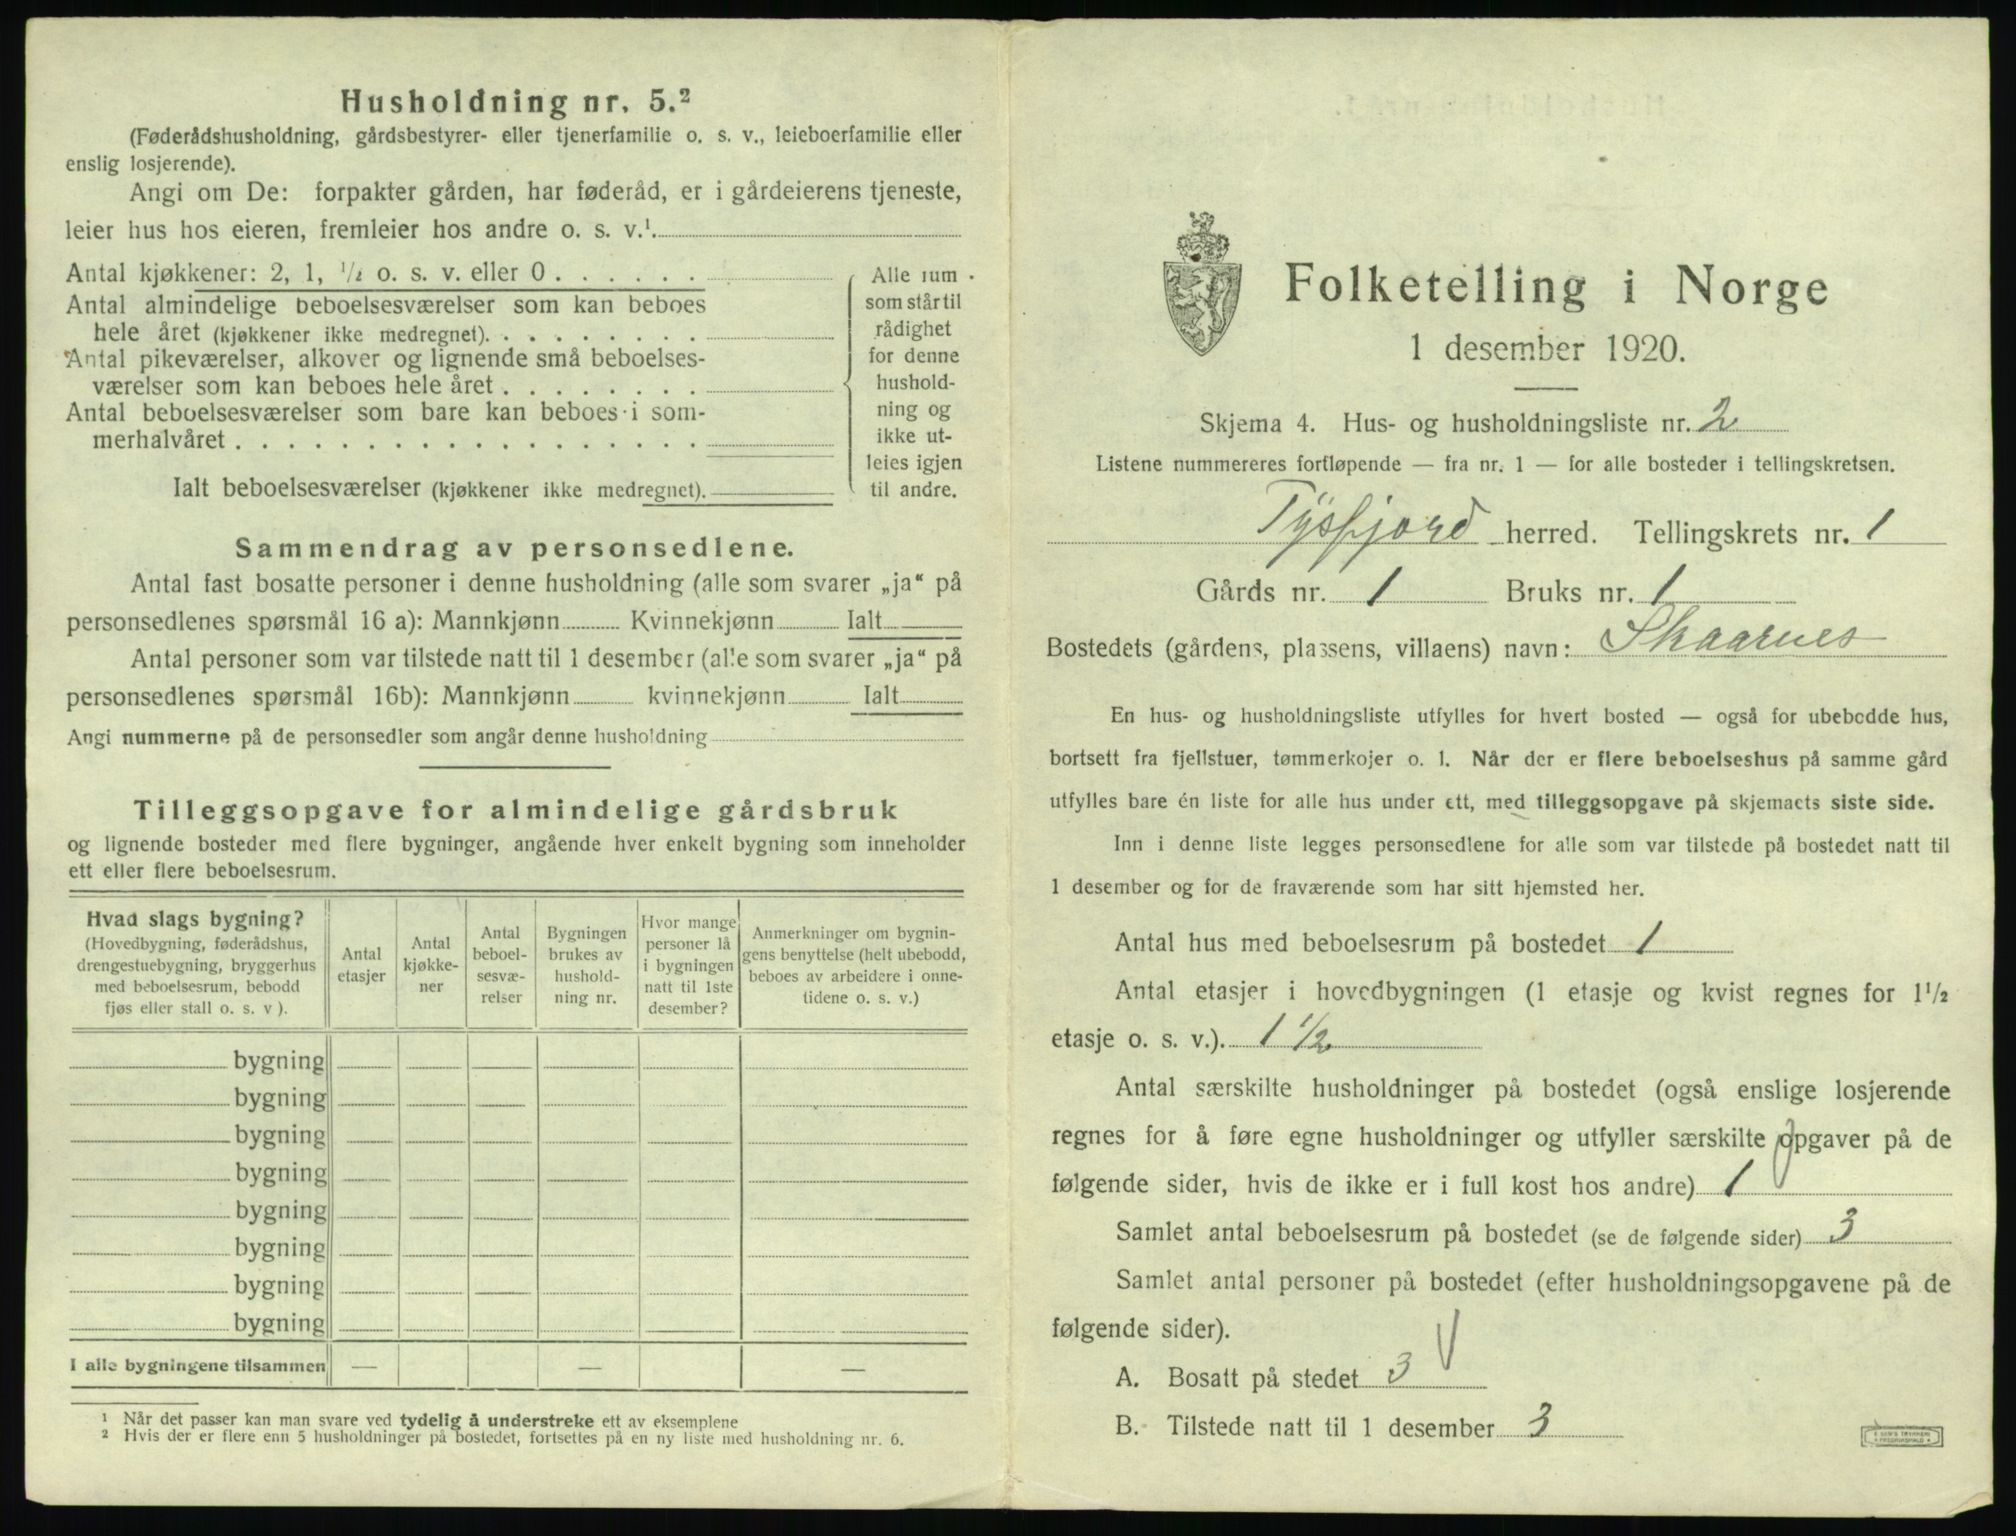 Husholdning nr. 5.²
(Føderådshusholdning, gårdsbestyrer- eller tjenerfamilie o. s. v., leieboerfamilie eller
enslig losjerende).
Angi om De: forpakter gården, har føderåd, er i gårdeierens tjeneste,
leier hus hos eieren, fremleier hos andre o. s. v.¹.
Antal kjøkkener: 2, 1, ½ o. s. v. eller 0 . . . . . .
Antal almindelige beboelsesværelser som kan beboes
hele året (kjøkkener ikke medregnet). . . . . . . . .
Antal pikeværelser, alkover og lignende små beboelses-
værelser som kan beboes hele året . . . . . . . .
Antal beboelsesværelser som bare kan beboes i som-
merhalvåret . . . . . . . . . . . . . . . . . .
Ialt beboelsesværelser (kjøkkener ikke medregnet).
Alle rum
som står til
rådighet
for denne
hushold-
ning og
ikke ut-
leies igjen
til andre.
Sammendrag av personsedlene.
Antal fast bosatte personer i denne husholdning (alle som svarer „ja“ på
personsedlenes spørsmål 16 a): Mannkjønn Kvinnekjønn Ialt
Antal personer som var tilstede natt til 1 desember (alle som svarer „ja“ på
personsedlenes spørsmål 16b): Mannkjønn kvinnekjønn Ialt
Angi nummerne på de personsedler som angår denne husholdning
Tilleggsopgave for almindelige gårdsbruk
og lignende bosteder med flere bygninger, angående hver enkelt bygning som inneholder
ett eller flere beboelsesrum.
Hvad slags bygning?
(Hovedbygning, føderådshus,
drengestuebygning, bryggerhus
med beboelsesrum, bebodd
fjøs eller stall o. s. v ).
Antal
etasjer
Antal
kjøkke-
ner
Antal
beboel-
sesvæ-
relser
Bygningen
brukes av
hushold-
ning nr.
Hvor mange
personer lå
i bygningen
natt til 1ste
desember?
Anmerkninger om bygnin-
gens benyttelse (helt ubebodd,
beboes av arbeidere i onne-
tidene o. s. v.)
bygning
bygning
bygning
bygning
bygning
bygning
bygning
bygning
I alle bygningene tilsammen — — —
¹ Når det passer kan man svare ved tydelig å understreke ett av eksemplene
² Hvis der er flere enn 5 husholdninger på bostedet, fortsettes på en ny liste med husholdning nr. 6.
Folketelling i Norge
1 desember 1920.
Skjema 4. Hus- og husholdningsliste nr. 2
Listene nummereres fortløpende — fra nr. 1 — for alle bosteder i tellingskretsen.
Tysfjord herred. Tellingskrets nr. 1
Gårds nr. 1 Bruks nr. 1
Bostedets (gårdens, plassens, villaens) navn: Skaarnes
En hus- og husholdningsliste utfylles for hvert bosted — også for ubebodde hus,
bortsett fra fjellstuer, tømmerkojer o. l. Når der er flere beboelseshus på samme gård
utfylles bare én liste for alle hus under ett, med tilleggsopgave på skjemaets siste side.
Inn i denne liste legges personsedlene for alle som var tilstede på bostedet natt til
1 desember og for de fraværende som har sitt hjemsted her.
Antal hus med beboelsesrum på bostedet 1
Antal etasjer i hovedbygningen (1 etasje og kvist regnes for 1½
etasje o. s. v.). 1 ½
Antal særskilte husholdninger på bostedet (også enslige losjerende
regnes for å føre egne husholdninger og utfyller særskilte opgaver på de
følgende sider, hvis de ikke er i full kost hos andre) 1
Samlet antal beboelsesrum på bostedet (se de følgende sider) 3
Samlet antal personer på bostedet (efter husholdningsopgavene på de
følgende sider).
A. Bosatt på stedet 3
B. Tilstede natt til 1 desember 3